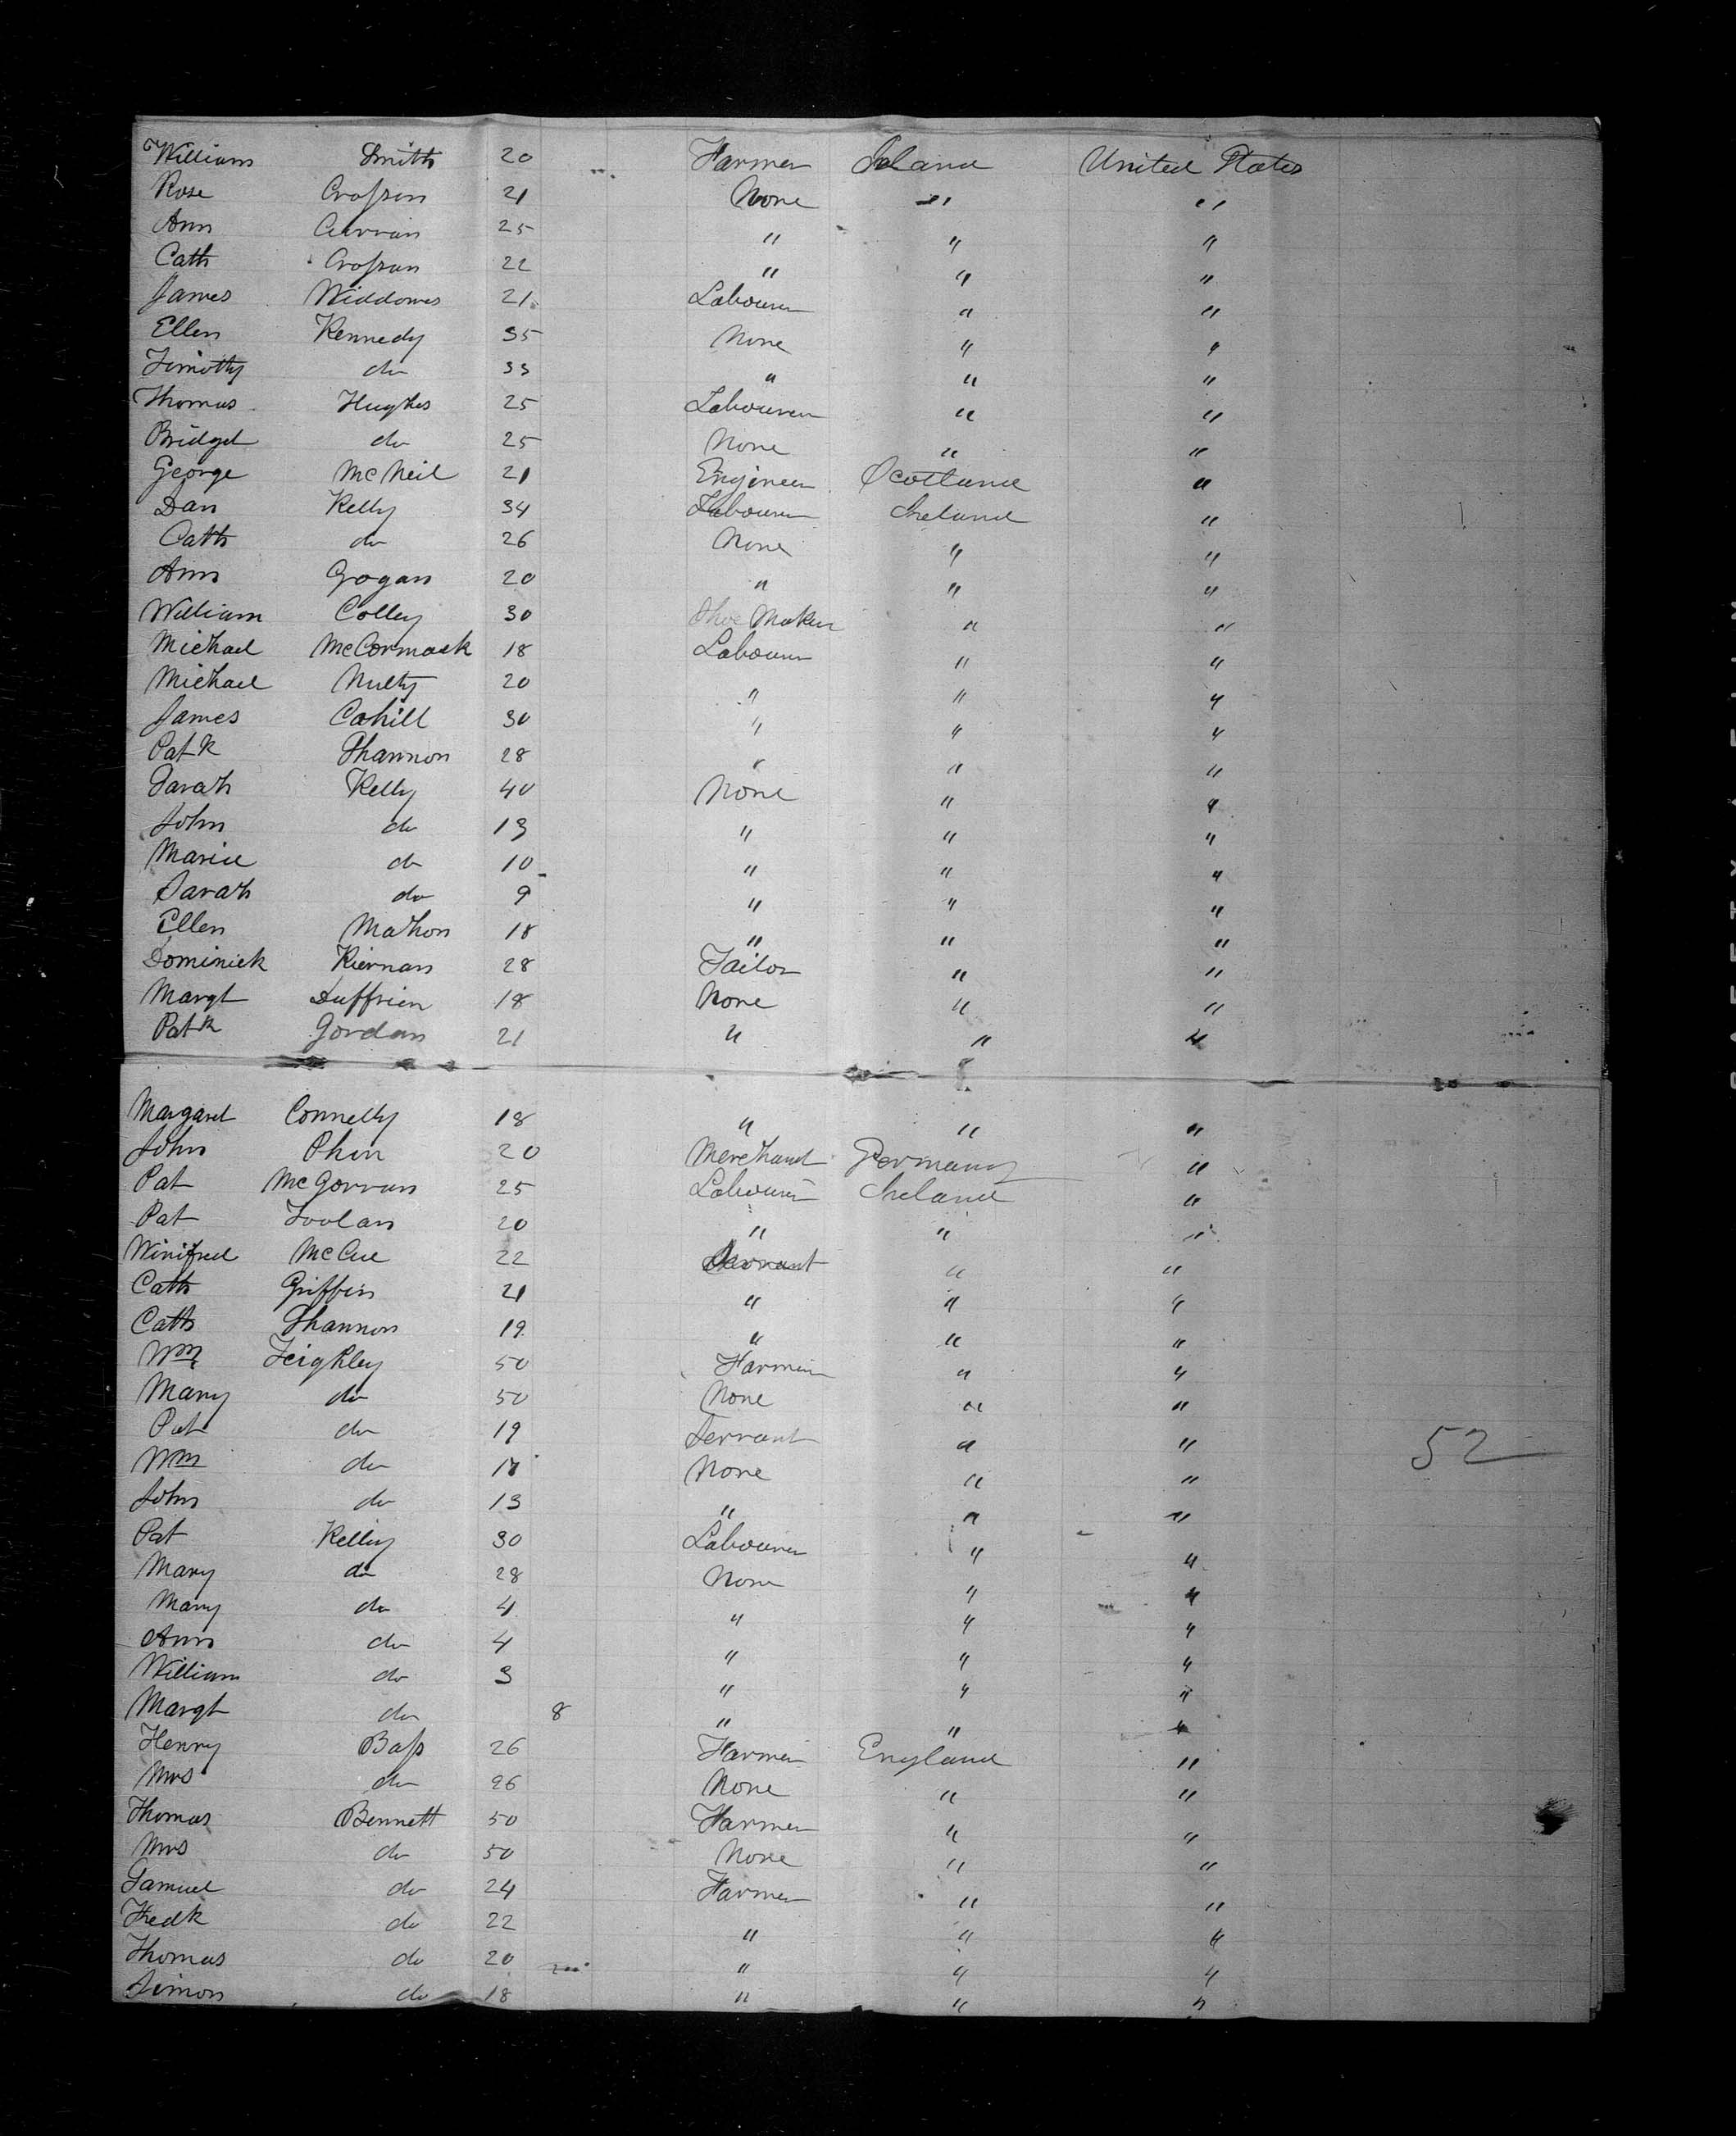 William Smith 20 Farmer Ireland United States
Rose Crossan 21 None " "
Ann Curran 25 " " "
Cath Crossan 22 " " "
James Widdows 21 Labourer " "
Ellen Kennedy 35 None " "
Timothy do 33 " " "
Thomas Hughes 25 Labourer " "
Bridget do 25 None " "
George McNeil 21 Engineer Scotland "
Dan Kelly 34 Labourer Ireland "
Cath do 26 None " "
Ann Gogan 20 " " "
William Colley 30 Shoe Maker " "
Michael McCormack 18 Labourer " "
Michael Nulty 20 " " "
James Cahill 30 " " "
Patk Shannon 28 " " "
Sarah Kelly 40 None " "
John do 13 " " "
Maria do 10 " " "
Sarah do 9 " " "
Ellen Mahon 18 " " "
Dominick Kiernan 28 Tailor " "
Margt 18 None " "
Patk Gordan 21 " " "
Margaret Connelly 18 " " "
John 20 Merchant Germany "
Pat McGovran 25 Labourer Ireland "
Pat Toolan 20 " " "
Winifred McCue 22 Servant " "
Cath Griffin 21 " " "
Cath Shannon 19 " " "
Wm Feighley 50 Farmer " "
Mary do 50 None " "
Pat do 19 Servant " "
Wm do None " "
John do 13 " " "
Pat Kelly 30 Labourer " "
Mary do 28 None " "
Mary do 4 " " "
Ann do 4 " " "
William do 3 " " "
Margt do 8 " " "
Henry Bass 26 Farmer England "
Mrs do 26 None " "
Thomas Bennett 50 Farmer " "
Mrs do 50 None " "
Samuel do 24 Farmer " "
Fredk do 22 " " "
Thomas do 20 " " "
Simon do 18 " " "
52